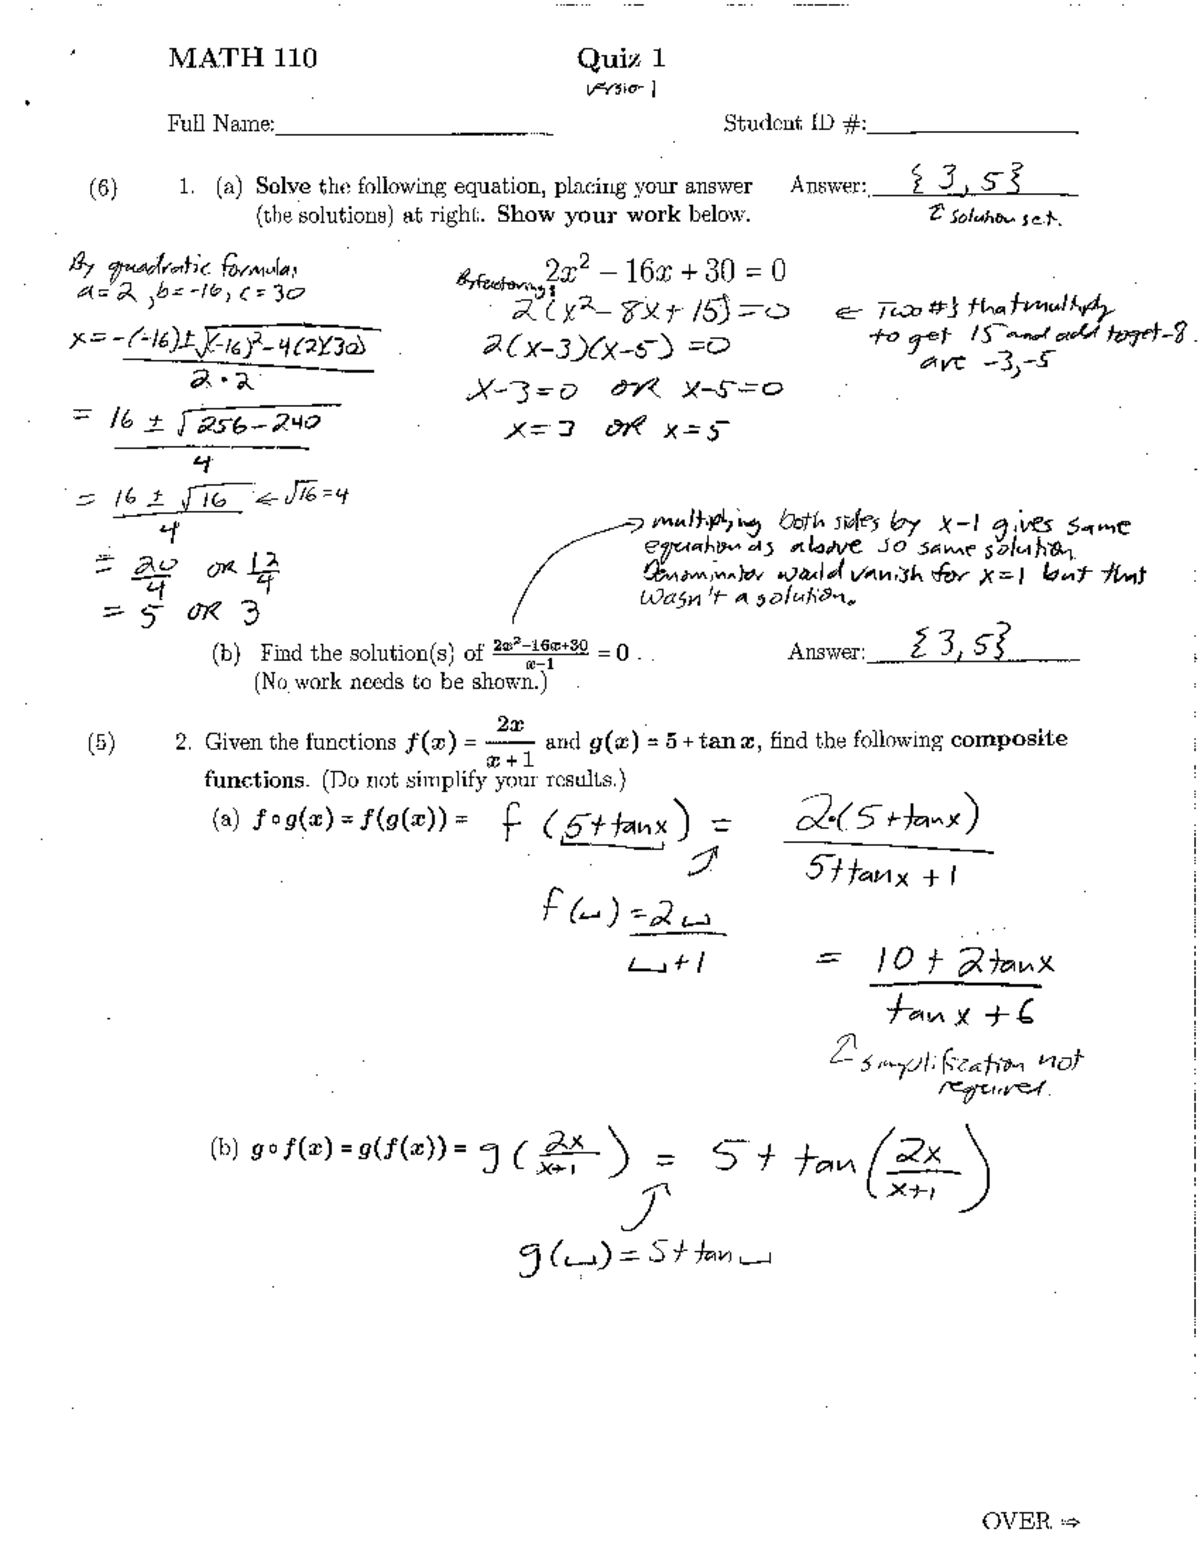 MATH 110 Quiz 1
version 1
Full Name: Student ID #:
(6) 1. (a) Solve the following equation, placing your answer Answer: {3, 5}
(the solutions) at right. Show your work below. ↑ solution set.
By quadratic formula:
a=2, b=-16, c=30
x = -(-16)±√(-16)²-4(2)(30)
2·2
= 16 ± √256-240
4
= 16 ± √16 ← √16=4
4
= 20/4 OR 12/4
= 5 OR 3
2x² − 16x + 30 = 0
By factoring:
2(x²-8x+15)=0 ← Two #s that multiply
to get 15 and add to get -8.
are -3,-5
2(x-3)(x-5)=0
x-3=0 OR x-5=0
x=3 OR x=5
→ multiplying both sides by x-1 gives same
equation as above so same solution.
Denominator would vanish for x=1 but that
wasn't a solution.
(b) Find the solution(s) of 2x²−16x+30/x−1 = 0 . Answer: {3,5}
(No work needs to be shown.)
(5) 2. Given the functions f(x) = 2x/x+1 and g(x) = 5 + tan x, find the following composite
functions. (Do not simplify your results.)
(a) f∘g(x) = f(g(x)) = f (5+tanx) = 2·(5+tanx)
5+tanx+1
f(␣)=2␣
␣+1
= 10+2tanx
tanx+6
↑ simplification not
required.
(b) g∘f(x) = g(f(x)) = g(2x/x+1) = 5+ tan(2x/x+1)
g(␣)=5+tan␣
OVER ⇒